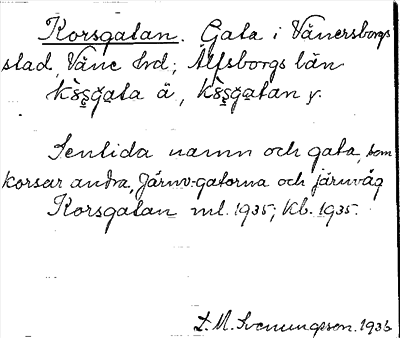 Korsgatan. Gata i Vänersborgs
stad, Väne hd; Älfsborgs län
gata ä, gatan y.
Sentida namn och gata, som
korsar andra, Järnv.-gatorna och järnväg
Korsgatan ml. 1935; Kb. 1935.
L. M. Svenungsson. 1936